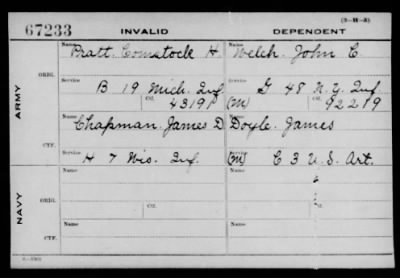 67233 INVALID DEPENDENT (3-M-3)
Name Pratt, Comstock H. Name Welch, John C
ARMY
ORIG. Service B 19 Mich. Inf. Service G 48 N.Y. Inf.
Ctf. 43191 (M) Ctf. 92219
Name Chapman, James D. Name Doyle, James
CTF. Service H 7 Wis. Inf. Service (M) C 3 U.S. Art.
NAVY
Name Name
ORIG. Ctf. Ctf.
Name Name
CTF.